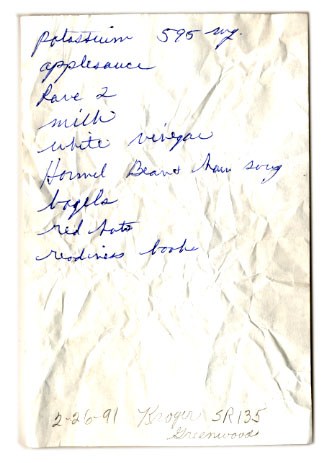 potassium 595 mg.
applesauce
Rave 2
milk
white vinegar
Hormel Bean & ham soup
bagels
red hots
readiness book
2-26-91 Kroger SR135
Greenwood